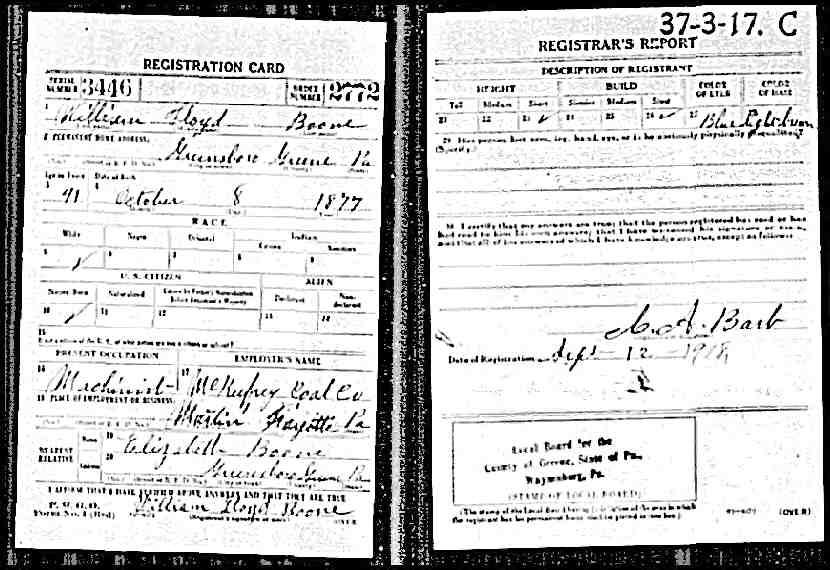 REGISTRATION CARD
SERIAL NUMBER 3446 ORDER NUMBER 2772
William Floyd Boone
PERMANENT HOME ADDRESS:
Greensboro Greene Pa
Age in Years Date of Birth
41 October 8 1877
RACE
White Negro Oriental Indian
Citizen
U. S. CITIZEN ALIEN
Native Born Naturalized Declared Non-declared
10 11 12
15
PRESENT OCCUPATION EMPLOYER'S NAME
16 Machinist 17 Coal Co
18 PLACE OF EMPLOYMENT OR BUSINESS:
Martin Fayette Pa
NEAREST RELATIVE Name 19 Elizabeth Boone
Address 20 Greensboro Greene Pa
I AFFIRM THAT I HAVE VERIFIED ABOVE ANSWERS AND THAT THEY ARE TRUE
William Floyd Boone
OVER
37-3-17. C
REGISTRAR'S REPORT
DESCRIPTION OF REGISTRANT
HEIGHT BUILD COLOR OF EYES COLOR OF HAIR
Tall Medium Short Slender Medium Stout
21 22 23 24 25 26 27 Blue
29 Has person lost arm, leg, hand, eye, or is he
(Specify.)
30 I certify that my answers are true; that the person registered has read or has
had read to him his own answers; that I have witnessed his signature or
and that all of his answers of which I have knowledge are true, except as follows:
A. Barb
Date of Registration Sept 12 1918
Local Board for the
County of Greene, State of Pa.,
Waynesburg, Pa.
(STAMP OF LOCAL BOARD)
(The stamp of the Local Board having jurisdiction of the area in which
the registrant has his permanent home shall be placed in this box.)
(OVER)